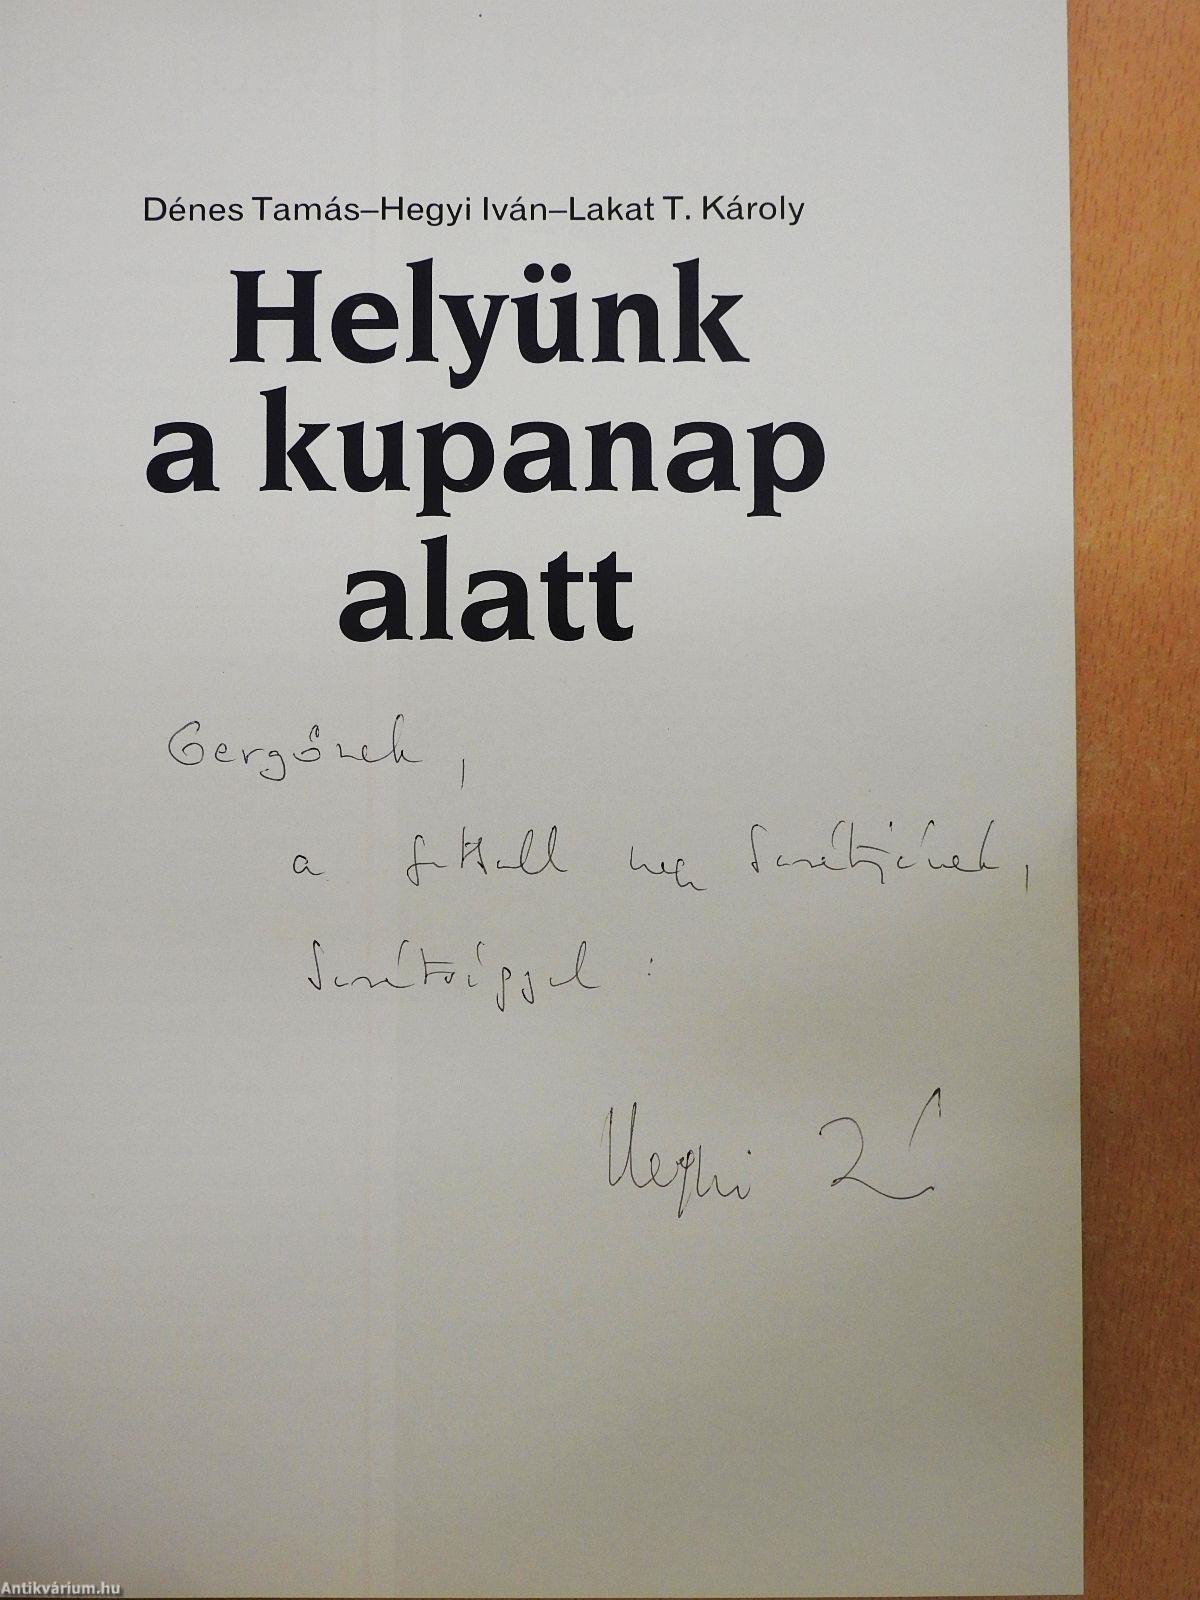 Dénes Tamás–Hegyi Iván–Lakat T. Károly
Helyünk
a kupanap
alatt
Gergőnek,
a futball nagy barátjának,
barátsággal:
Hegyi Iván
Antikvárium.hu